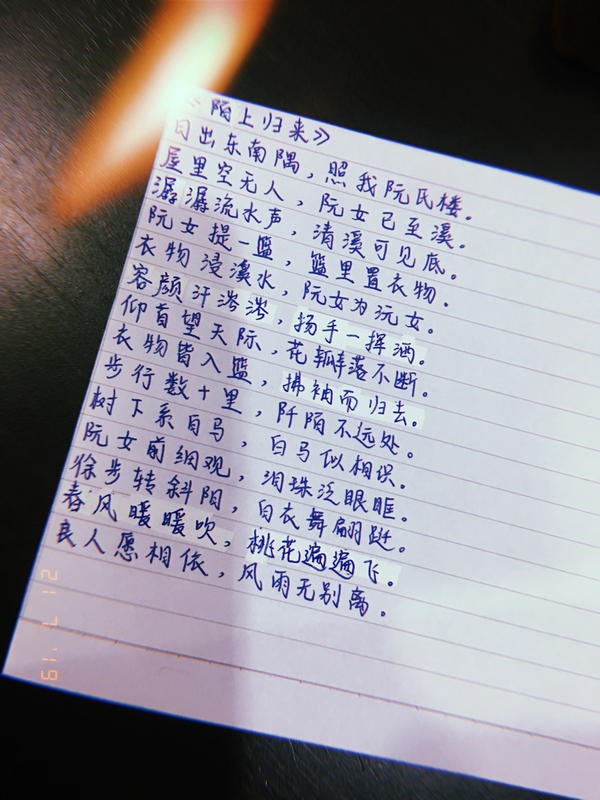 《陌上归来》
日出东南隅，照我阮氏楼。
屋里空无人，阮女已至溪。
潺潺流水声，清溪可见底。
阮女提一篮，篮里置衣物。
衣物浸溪水，阮女为沅女。
容颜汗涔涔，扬手一挥洒。
仰首望天际，花瓣落不断。
衣物皆入篮，拂袖而归去。
步行数十里，阡陌不远处。
树下系白马，白马似相识。
阮女前细观，泪珠泛眼眶。
徐步转斜阳，白衣舞翩跹。
春风暖暖吹，桃花遍遍飞。
良人愿相依，风雨无别离。